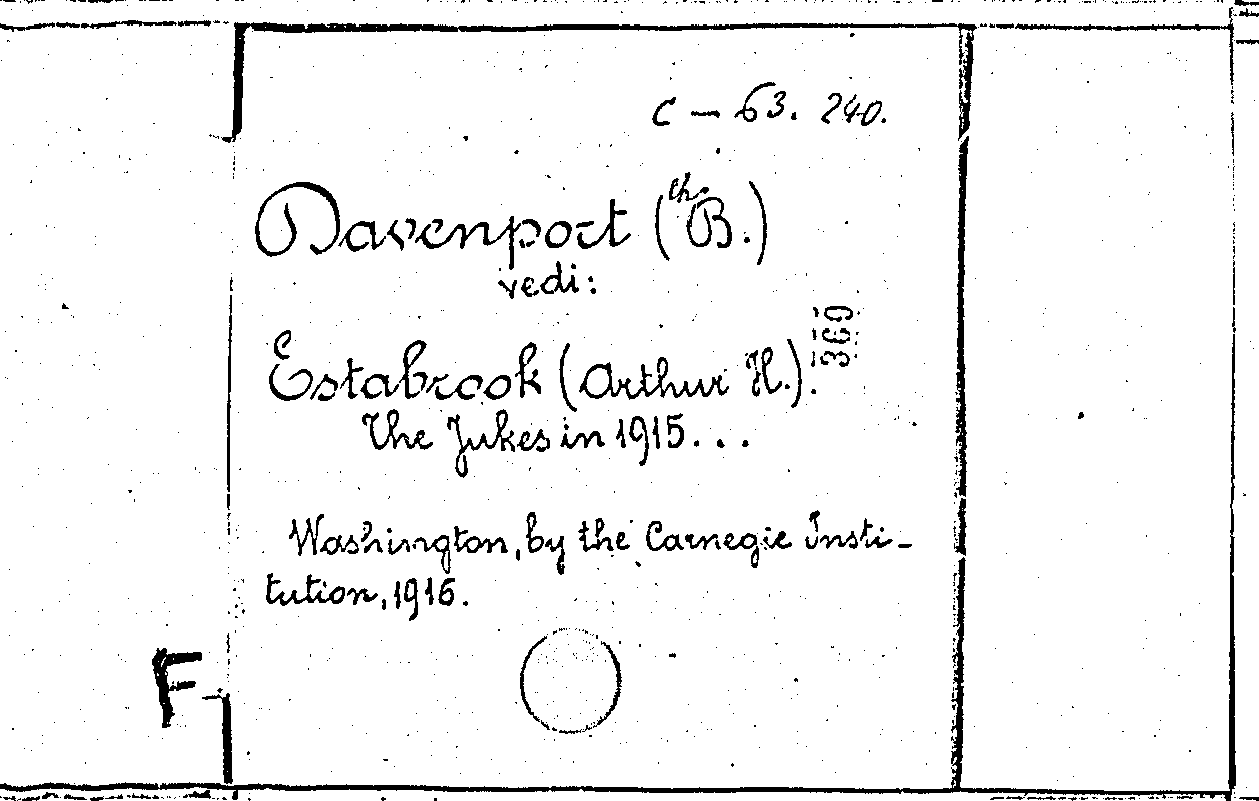 C - 63. 240.
Davenport (Ch. B.)
vedi:
369
Estabrook (Arthur H.).
The Jukes in 1915...
Washington, by the Carnegie Insti-
tution, 1916.
F